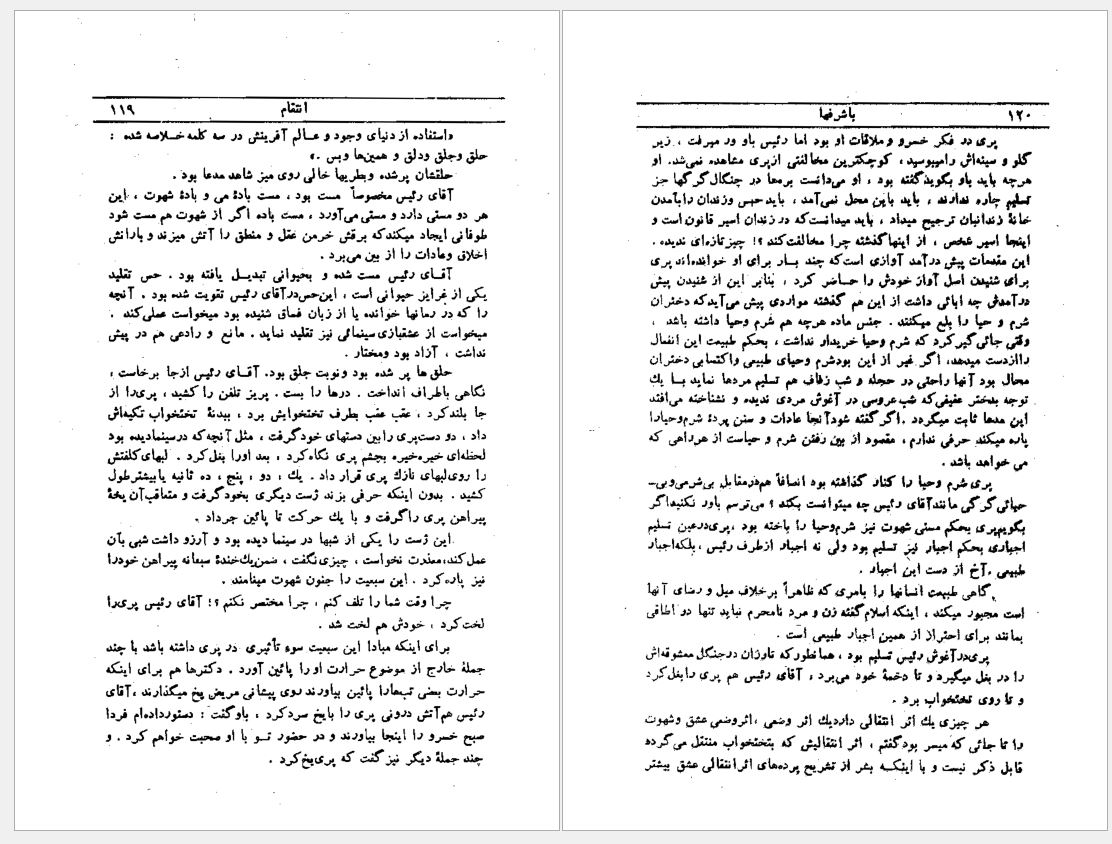 انتقام ۱۱۹
«استفاده از دنیای وجود و عـالم آفرینش در سه کلمه خـلاصه شده :
حلق وجلق ودلق و همین‌ها وبس .»
حلقشان پرشده وبطریها خالی روی میز شاهد مدعا بود .
آقای رئیس مخصوصاً مست بود ، مست بادهٔ می و بادهٔ شهوت ، این
هر دو مستی دارد و مستی می‌آورد ، مست باده اگر از شهوت هم مست شود
طوفانی ایجاد میکندکه برقش خرمن عقل و منطق را آتش میزند و بارانش
اخلاق وعادات را از بین می‌برد .
آقـای رئیس مست شده و بحیوانی تبدیـل یافته بود . حس تقلید
یکی از غرایز حیوانی است ، این‌حس‌درآقای رئیس تقویت شده بود . آنچه
را که در رمانها خوانده یا از زبان فساق شنیده بود میخواست عملی‌کند .
میخواست از عشقبازی‌سینمائی نیز تقلید نماید . مانع و رادعی هم در پیش
نداشت ، آزاد بود ومختار .
حلق‌ها پر شده بود ونوبت جلق بود. آقـای رئیس ازجا برخاست ،
نگاهی باطراف انداخت . درها را بست . پریز تلفن را کشید ، پری‌را از
جا بلندکرد ، عقب عقب بطرف تختخوابش برد ، ببدنهٔ تختخواب تکیه‌اش
داد ، دو دست‌پری رابین دستهای خودگرفت ، مثل آنچه‌که درسینمادیده بود
لحظه‌ای خیره‌خیره بچشم پری نگاه‌کرد ، بعد اورا بغل‌کرد . لبهای‌کلفتش
را روی‌لبهای نازك پری قرار داد . یك ، دو ، پنج ، ده ثانیه یابیشترطول
کشید . بدون اینکه حرفی بزند ژست دیگری بخودگرفت و متعاقب‌آن یخهٔ
پیراهن پری راگرفت و با یك حرکت تا پائین جرداد .
این ژست را یکی از شبها در سینما دیده بود و آرزو داشت شبی بآن
عمل‌کند،معذرت نخواست ، چیزی‌نگفت ، ضمن‌یك‌خندهٔ سبعانه پیراهن خودرا
نیز پاره‌کرد . این سبعیت را جنون شهوت مینامند .
چرا وقت شما را تلف کنم ، چرا مختصر نکنم ؟! آقای رئیس پری‌را
لخت‌کرد ، خودش هم لخت شد .
برای اینکه مبادا این سبعیت سوء تأثیری در پری داشته باشد با چند
جملهٔ خارج از موضوع حرارت او را پائین آورد . دکترها هم برای اینکه
حرارت بعنی تب‌هارا پائین بیاورند روی پیشانی مریض یخ میگذارند ،آقای
رئیس هم‌آتش درونی پری را بایخ سردکرد ، باوگفت : دستورداده‌ام فردا
صبح خسرو را اینجا بیاورند و در حضور تـو با او صحبت خواهم کرد . و
چند جملهٔ دیگر نیز گفت که پری‌یخ‌کرد .
باشرفها ۱۲۰
پری در فکر خسرو و ملاقات او بود اما رئیس باو ور میرفت ، زیر
گلو و سینه‌اش رامیبوسید ، کوچکترین مخالفتی ازپری مشاهده نمی‌شد. او
هرچه باید باو بگویدگفته بود ، او می‌دانست بره‌ها در چنگال‌گرگها جز
تسلیم چاره ندارند ، باید باین محل نمی‌آمد ، باید حبس وزندان رابآمدن
خانهٔ زندانبان ترجیح میداد ، باید میدانست‌که در زندان اسیر قانون است و
اینجا اسیر شخص ، از اینهاگذشته چرا مخالفت‌کند ؟! چیزتازه‌ای ندیده .
این مقدمات پیش درآمد آوازی است‌که چند بـار برای او خوانده‌اند پری
برای شنیدن اصل آواز خودش را حـاضر کرد ، بنابر این از شنیدن پیش
درآمدش چه ابائی داشت از این هم گذشته مواردی پیش می‌آیدکه دختران
شرم و حیا را بلع میکنند . جنس ماده هرچه هم شرم وحیا داشته باشد ،
وقتی جائی‌گیرکرد که شرم وحیا خریدار نداشت ، بحکم طبیعت این انفعال
راازدست میدهد، اگر غیر از این بودشرم وحیای طبیعی واکتسابی دختران
محال بود آنها راحتی در حجله و شب زفاف هم تسلیم مردها نماید بـا یك
توجه بدختر عفیفی‌که شب‌عروسی در آغوش مردی ندیده و نشناخته می‌افتد
این مدعا ثابت میگردد .اگرگفته شودآنجا عادات و سنن پردهٔ شرم‌وحیارا
پاره میکند حرفی ندارم ، مقصود از بین رفتن شرم و حیاست از هرراهی که
می خواهد باشد .
پری شرم وحیا را کنار گذاشته بود انصافاً هم‌درمقابل بی‌شرمی‌وبی‌ـ
حیائی‌گرگی مانندآقای رئیس چه میتوانست بکند ؟ می‌ترسم باور نکنیداگر
بگویم‌پری بحکم مستی شهوت نیز شرم‌وحیا را باخته بود ،پری‌درعین تسلیم
اجباری بحکم اجبار نیز تسلیم بود ولی نه اجبار ازطرف رئیس ، بلکه‌اجبار
طبیعی .آخ از دست این اجبار .
گاهی طبیعت انسانها را بامری که ظاهراً برخلاف میل و رضای آنها
است مجبور میکند ، اینکه اسلام‌گفته زن و مرد نامحرم نباید تنها در اطاقی
بمانند برای احتراز از همین اجبار طبیعی است .
پری‌درآغوش رئیس تسلیم بود ، همانطورکه تارزان درجنگل معشوقه‌اش
را در بغل میگیرد و تا دخمهٔ خود می‌برد ، آقای رئیس هم پری رابغل‌کرد
و تا روی تختخواب برد .
هر چیزی یك اثر انتقالی داردیك اثر وضعی ،اثروضعی عشق وشهوت
را تا جائی که میسر بودگفتم ، اثر انتقالیش که بتختخواب منتقل می‌گرده
قابل ذکر نیست و با اینکـه بشر از تشریح پرده‌های اثرانتقالی عشق بیشتر